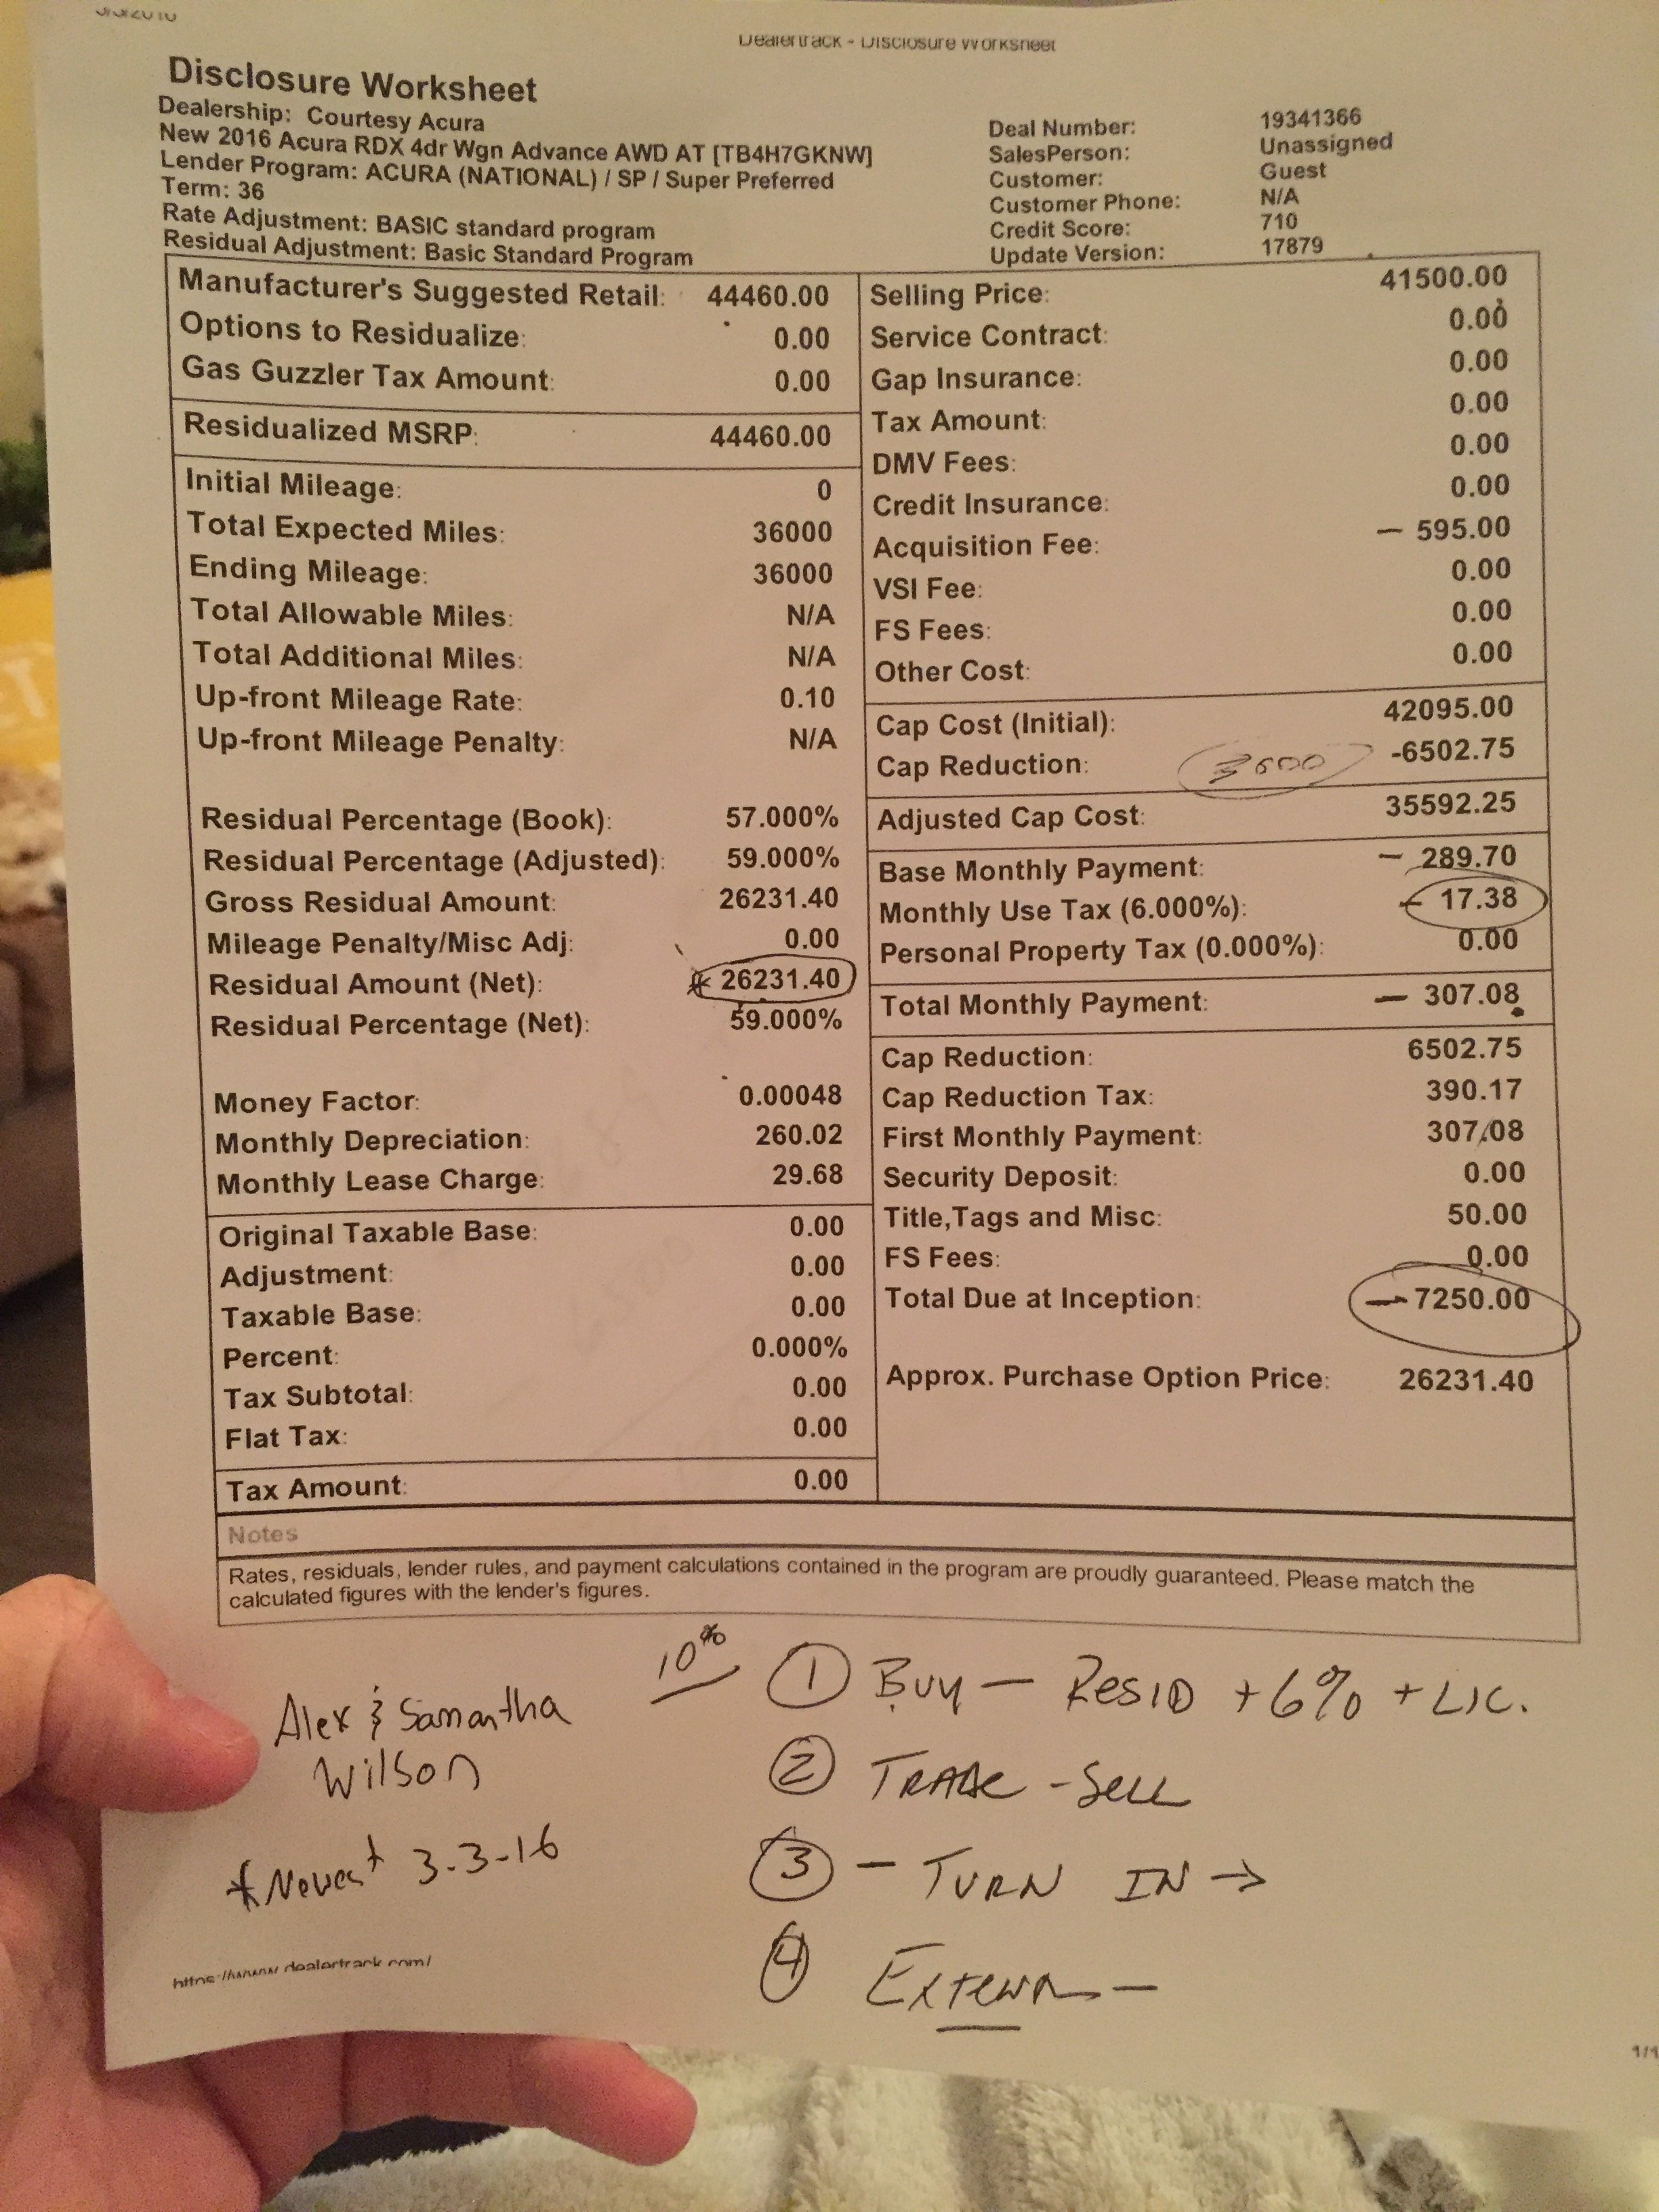 3/3/2016
Dealertrack - Disclosure Worksheet
Disclosure Worksheet
Dealership: Courtesy Acura
New 2016 Acura RDX 4dr Wgn Advance AWD AT [TB4H7GKNW]
Lender Program: ACURA (NATIONAL) / SP / Super Preferred
Term: 36
Rate Adjustment: BASIC standard program
Residual Adjustment: Basic Standard Program
Deal Number: 19341366
SalesPerson: Unassigned
Customer: Guest
Customer Phone: N/A
Credit Score: 710
Update Version: 17879
Manufacturer's Suggested Retail: 44460.00
Options to Residualize: 0.00
Gas Guzzler Tax Amount: 0.00
Residualized MSRP: 44460.00
Initial Mileage: 0
Total Expected Miles: 36000
Ending Mileage: 36000
Total Allowable Miles: N/A
Total Additional Miles: N/A
Up-front Mileage Rate: 0.10
Up-front Mileage Penalty: N/A
Residual Percentage (Book): 57.000%
Residual Percentage (Adjusted): 59.000%
Gross Residual Amount: 26231.40
Mileage Penalty/Misc Adj: 0.00
Residual Amount (Net): * 26231.40
Residual Percentage (Net): 59.000%
Money Factor: 0.00048
Monthly Depreciation: 260.02
Monthly Lease Charge: 29.68
Original Taxable Base: 0.00
Adjustment: 0.00
Taxable Base: 0.00
Percent: 0.000%
Tax Subtotal: 0.00
Flat Tax: 0.00
Tax Amount: 0.00
Selling Price: 41500.00
Service Contract: 0.00
Gap Insurance: 0.00
Tax Amount: 0.00
DMV Fees: 0.00
Credit Insurance: 0.00
Acquisition Fee: — 595.00
VSI Fee: 0.00
FS Fees: 0.00
Other Cost: 0.00
Cap Cost (Initial): 42095.00
Cap Reduction: 3600 -6502.75
Adjusted Cap Cost: 35592.25
Base Monthly Payment: — 289.70
Monthly Use Tax (6.000%): — 17.38
Personal Property Tax (0.000%): 0.00
Total Monthly Payment: — 307.08
Cap Reduction: 6502.75
Cap Reduction Tax: 390.17
First Monthly Payment: 307.08
Security Deposit: 0.00
Title,Tags and Misc: 50.00
FS Fees: 0.00
Total Due at Inception: — 7250.00
Approx. Purchase Option Price: 26231.40
Notes
Rates, residuals, lender rules, and payment calculations contained in the program are proudly guaranteed. Please match the
calculated figures with the lender's figures.
10%
① Buy — Resid + 6% + Lic.
② Trade - Sell
③ — Turn in →
④ Extend —
Alex & Samantha
Wilson
* Newest 3-3-16
https://www.dealertrack.com/
1/1